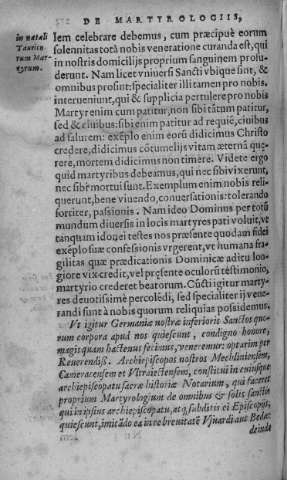 DE MARTYROLOGIIS,
in natali
Taurin-
rum Mar-
tyrum.
lem celebrare debemus, cum præcipuè eorum
solennitas totâ nobis veneratione curanda est, qui
in nostris domicilijs proprium sanguinem profu-
derunt. Nam licet vniuersi Sancti vbique sint, &
omnibus prosint: specialiter illi tamen pro nobis
interueniunt, qui & supplicia pertulere pro nobis.
Martyr enim cum patitur, non sibi tãtum patitur,
sed & ciuibus: sibi enim patitur ad requiẽ, ciuibus
ad salutem: exẽplo enim eorũ didicimus Christo
credere, didicimus cõtumelijs vitam æternã quæ-
rere, mortem didicimus non timere. Videte ergo
quid martyribus debeamus, qui nec sibi vixerunt,
nec sibi mortui sunt. Exemplum enim nobis reli-
querunt, bene viuendo, conuersationis: tolerando
fortiter, passionis. Nam ideo Dominus per totũ
mundum diuersis in locis martyres pati voluit, vt
tanquam idonei testes nos præsente quodam fidei
exẽplo suæ confessionis vrgerent, vt humana fra-
gilitas quæ prædicationis Dominicæ aditu lon-
giore vix credit, vel præsente oculorũ testimonio,
martyrio crederet beatorum. Cũcti igitur marty-
res deuotissimè percolẽdi, sed specialiter ij vene-
randi sunt à nobis quorum reliquias possidemus.
Vt igitur Germaniæ nostræ inferioris Sanctos quo-
rum corpora apud nos quiescunt, condigno honore,
magis quam hactenus fecimus, veneremur: optarim per
Reuerendiss. Archiepiscopos nostros Mechliniensem,
Cameracensem et Vltraiectensem, constitui in cuiusque
archiepiscopatu sacræ historiæ Notarium, qui faceret
proprium Martyrologium de omnibus & solis sanctis
qui in ipsius archiepiscopatu, et ei subditis ei Episcopis,
quiescunt, imitãdo ea in re breuitatẽ Vsuardi aut Bedæ:
deinde